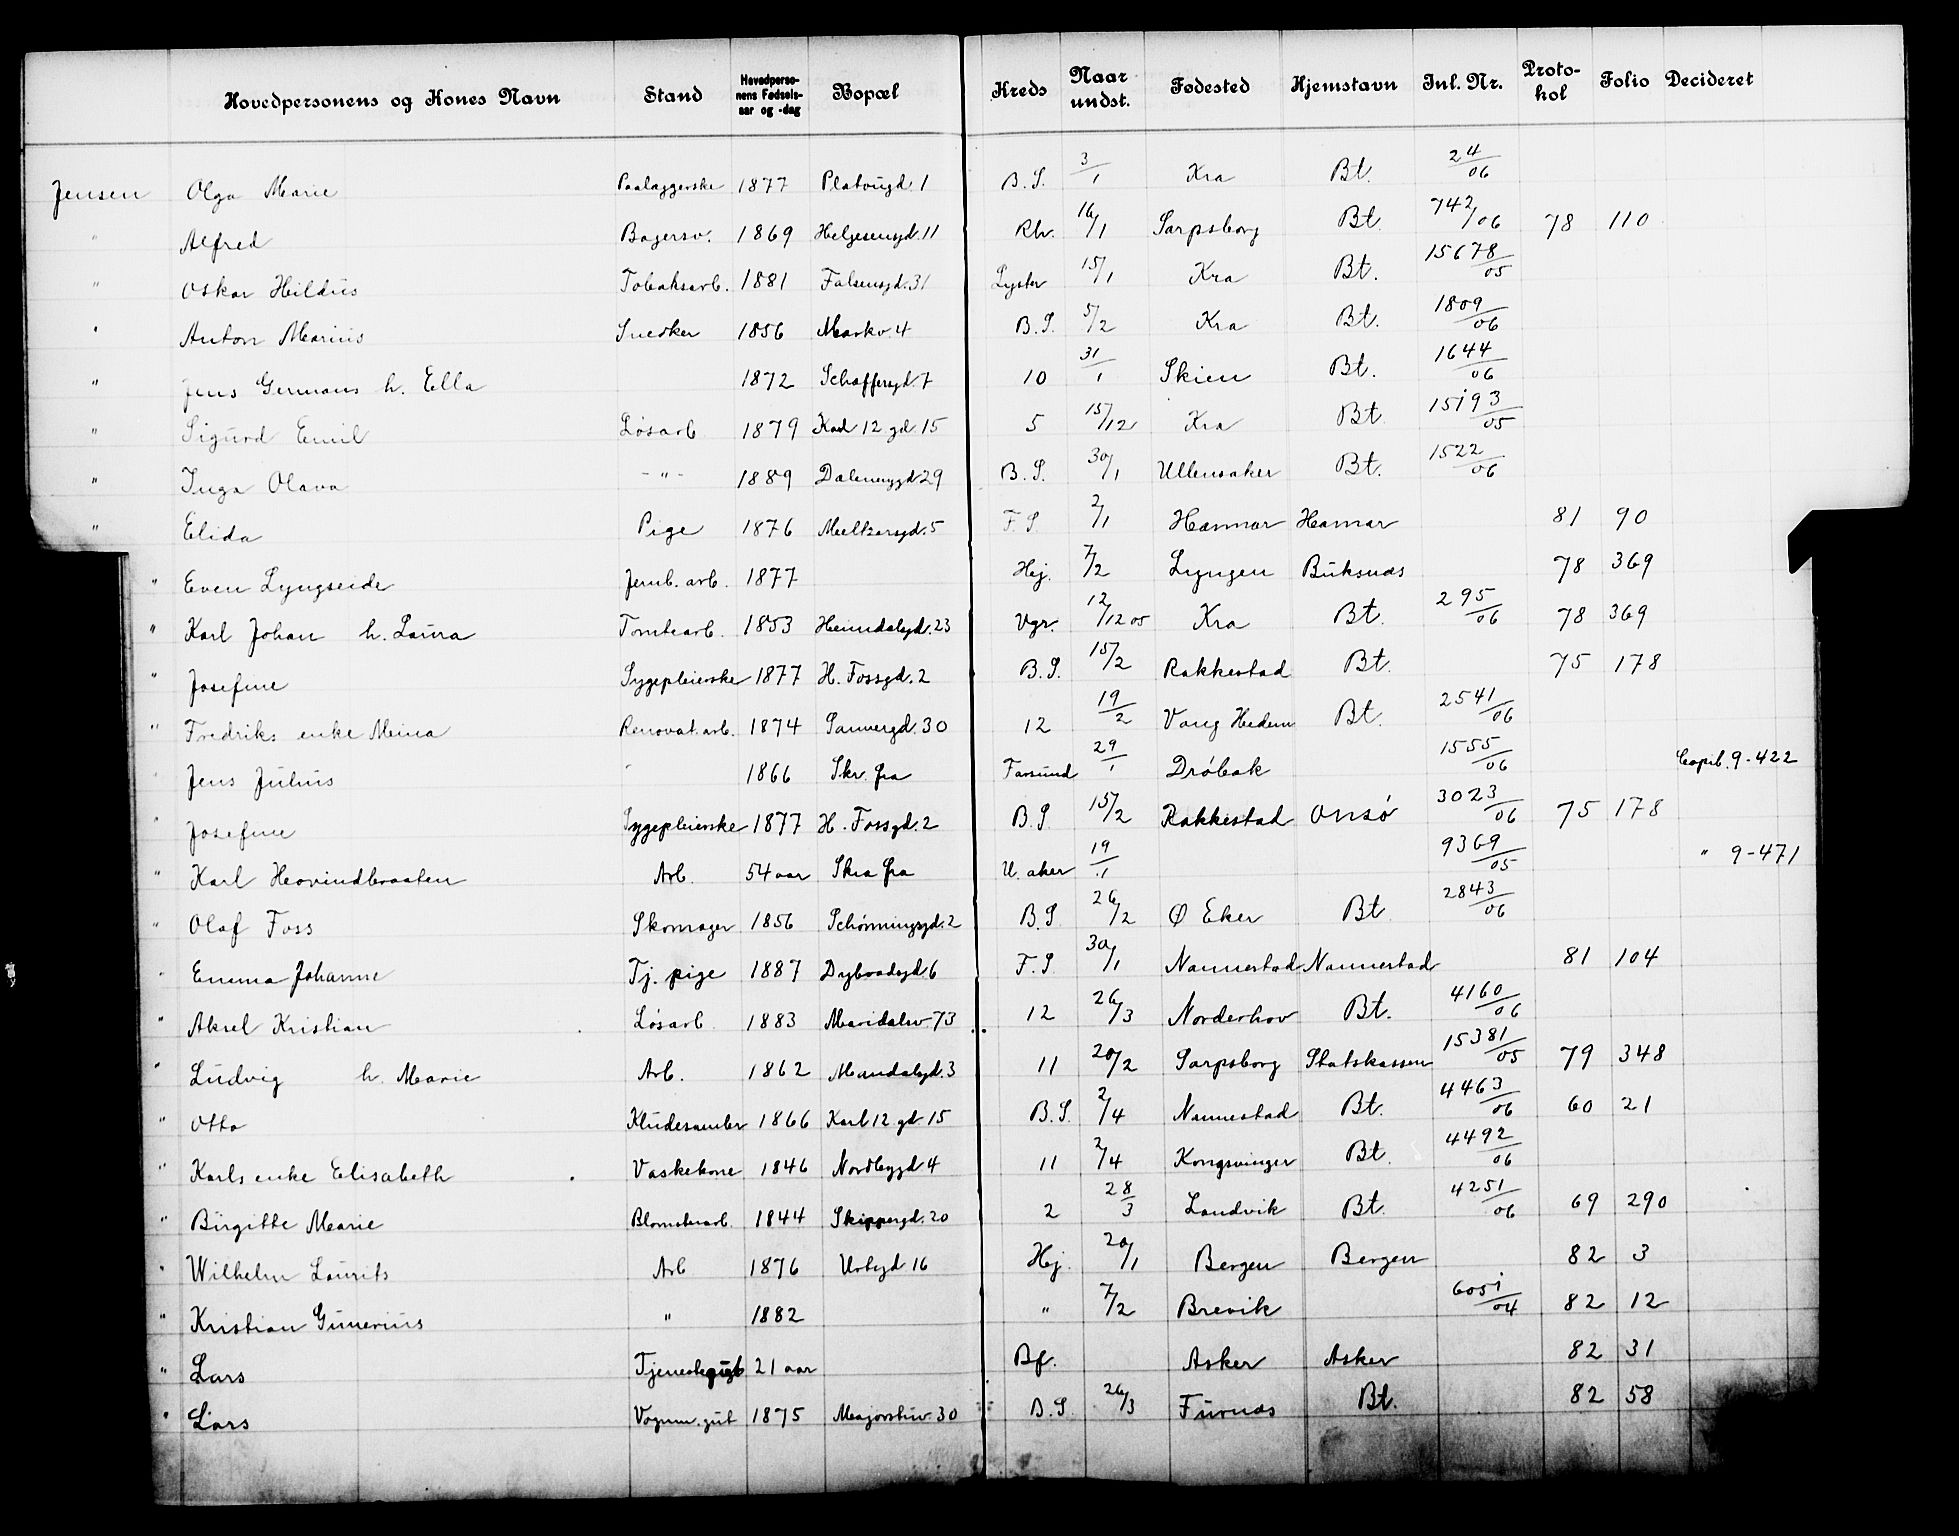 Hovedpersonens og Kones Navn Stand Hovedperso-nens Fødsels-aar og -dag Bopæl Kreds Naar undst. Fødested Hjemstavn Inl. Nr. Proto-kol Folio Decideret
Jensen Olga Marie Paalæggerske 1877 Platougd. 1 B.S. 3/1 Kra Bt. 24/06
" Alfred Bagersv. 1869 Helgesensgd. 11 Rh. 16/1 Sarpsborg Bt. 742/06 78 110
" Oskar Hildus Tobaksarb. 1881 Falsensgd. 31 Lyster 15/1 Kra Bt. 15678/05
" Anton Marius Snedker 1856 Markv. 4 B.S. 5/2 Kra Bt. 1809/06
" Jens Germans h. Ella 1872 Schaffersgd. 7 10 31/1 Skien Bt. 1644/06
" Sigurd Emil Løsarb. 1879 Karl 12 gd. 15 5 15/12 Kra Bt. 15193/05
" Inga Olava -"- 1889 Dælenenggd. 29 B.S. 30/1 Ullensaker Bt. 1522/06
" Elida Pige 1876 Meltzersgd. 5 F.S. 2/1 Hamar Hamar 81 90
" Even Lyngseide Jernb. arb. 1877 Hej. 7/2 Lyngen Buksnæs 78 369
" Karl Johan h. Laura Tomtearb. 1853 Heimdalsgd. 23 Vgr. 12/12 05 Kra Bt. 295/06 78 369
" Josefine Sygepleierske 1877 H. Fossgd. 2 B.S. 15/2 Rakkestad Bt. 75 178
" Fredriks enke Meina Renovat. arb. 1874 Sannergd. 30 12 19/2 Vang Hedem Bt. 2541/06
" Jens Julius 1866 Skr. fra Farsund 29/1 Drøbak 1555/06 Copib. 9-422
" Josefine Sygepleierske 1877 H. Fossgd. 2 B.S. 15/2 Rakkestad Onsø 3023/06 75 178
" Karl Hovindbraaten Arb. 54 aar Skr. fra U. aker 19/1 9369/05 " 9-471
" Olaf Foss Skomager 1856 Schønningsgd. 2 B.S. 26/2 Ø Eker Bt. 2843/06
" Emma Johanne Tj. pige 1887 Dybvadsgd. 6 F.S. 30/1 Nannestad Nannestad 81 104
" Aksel Kristian Løsarb. 1883 Maridalsv. 73 12 26/3 Norderhov Bt. 4160/06
" Ludvig h. Marie Arb. 1862 Mandalsgd. 3 11 20/2 Sarpsborg Statskassen 15381/05 79 348
" Otto Kludesamler 1866 Karl 12 gd. 15 B.S. 2/4 Nannestad Bt. 4463/06 60 21
" Karls enke Elisabeth Vaskekone 1846 Nordbygd 4 11 2/4 Kongsvinger Bt. 4492/06
" Birgitte Marie Blomsterarb. 1844 Skippergd. 20 2 28/3 Landvik Bt. 4251/06 69 290
" Wilhelm Laurits Arb 1876 Urtegd 16 Hej. 20/1 Bergen Bergen 82 3
" Kristian Gunerius " 1882 " 7/2 Brevik 6051/04 82 12
" Lars Tjenestegut 21 aar Bf. Asker Asker 82 31
" Lars Vognm. gut 1875 Majorstuv. 30 B.S. 26/3 Furnæs Bt. 82 58